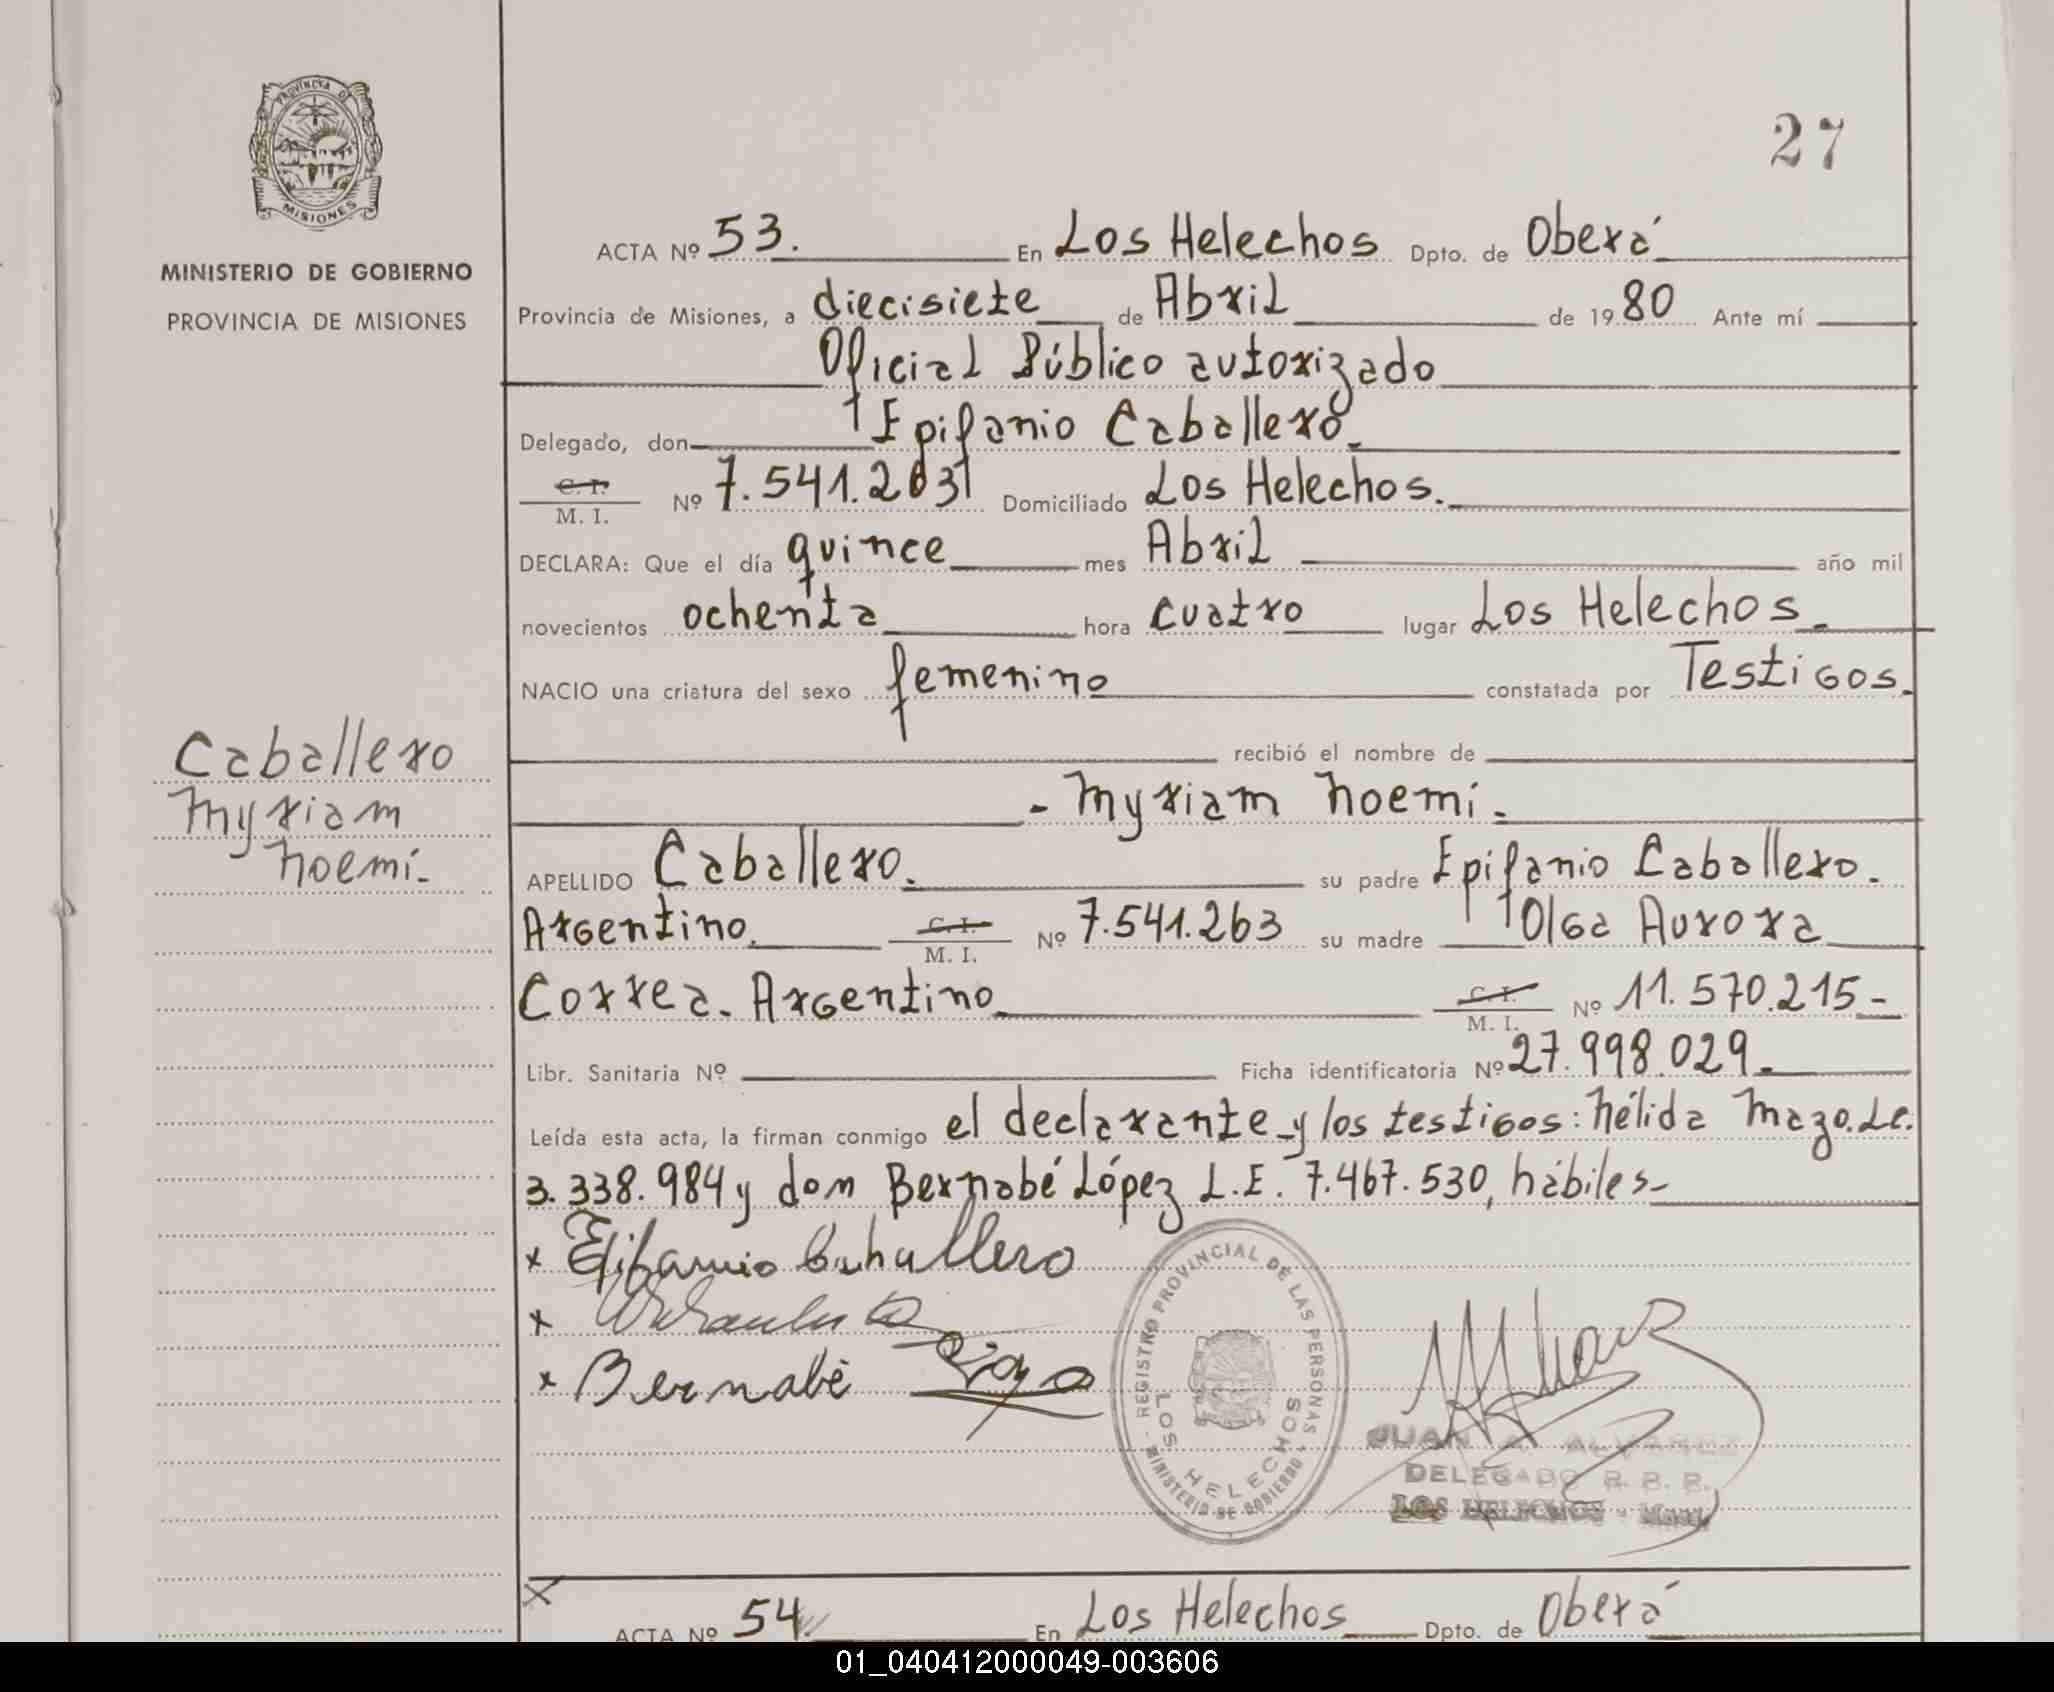 PROVINCIA DE
MISIONES
MINISTERIO DE GOBIERNO
PROVINCIA DE MISIONES
27
ACTA Nº 53. En Los Helechos Dpto. de Oberá
Provincia de Misiones, a diecisiete de Abril de 1980 Ante mí
Oficial Público autorizado
Delegado, don Epifanio Caballero
C. I.
M. I. Nº 7.541.263 Domiciliado Los Helechos.
DECLARA: Que el día quince mes Abril año mil
novecientos ochenta hora cuatro lugar Los Helechos
NACIO una criatura del sexo femenino constatada por Testigos.
recibió el nombre de
- Myriam Noemí -
Caballero
Myriam
Noemí.
APELLIDO Caballero. su padre Epifanio Caballero.
Argentino C. I. M. I. Nº 7.541.263 su madre Olga Aurora
Correa. Argentino C. I. M. I. Nº 11.570.215-
Libr. Sanitaria Nº Ficha identificatoria Nº 27.998.029
Leída esta acta, la firman conmigo el declarante y los testigos: Nélida Mazo. Lc.
3.338.984 y don Bernabé López L.E. 7.467.530, hábiles-
x Epifanio Caballero
x
x Bernabé
REGISTRO PROVINCIAL DE LAS PERSONAS
MINISTERIO DE GOBIERNO
LOS HELECHOS
JUAN A. ALVAREZ
DELEGADO R. P. P.
LOS HELECHOS - Mnes.
x
ACTA Nº 54 En Los Helechos Dpto. de Oberá
01_040412000049-003606